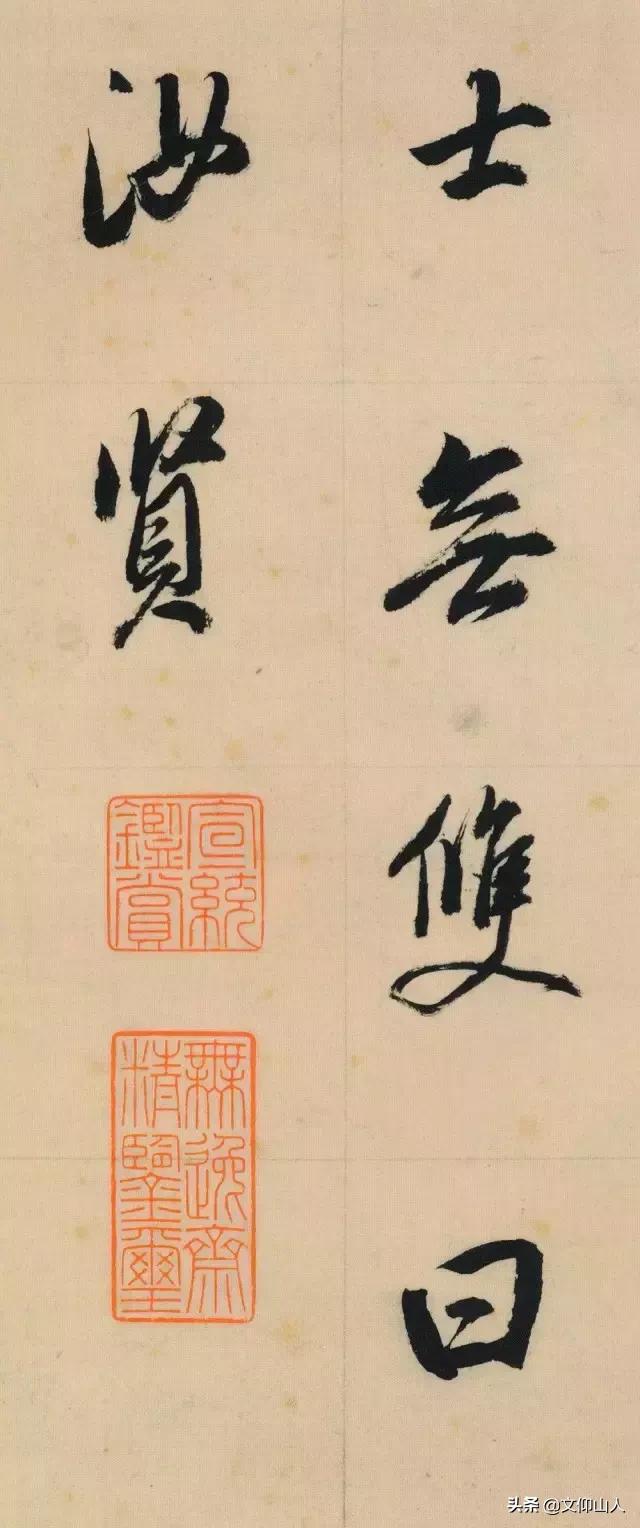 士無雙曰
汝賢
宣統
鑑賞
無逸齋
精鑒璽
头条 @文仰山人